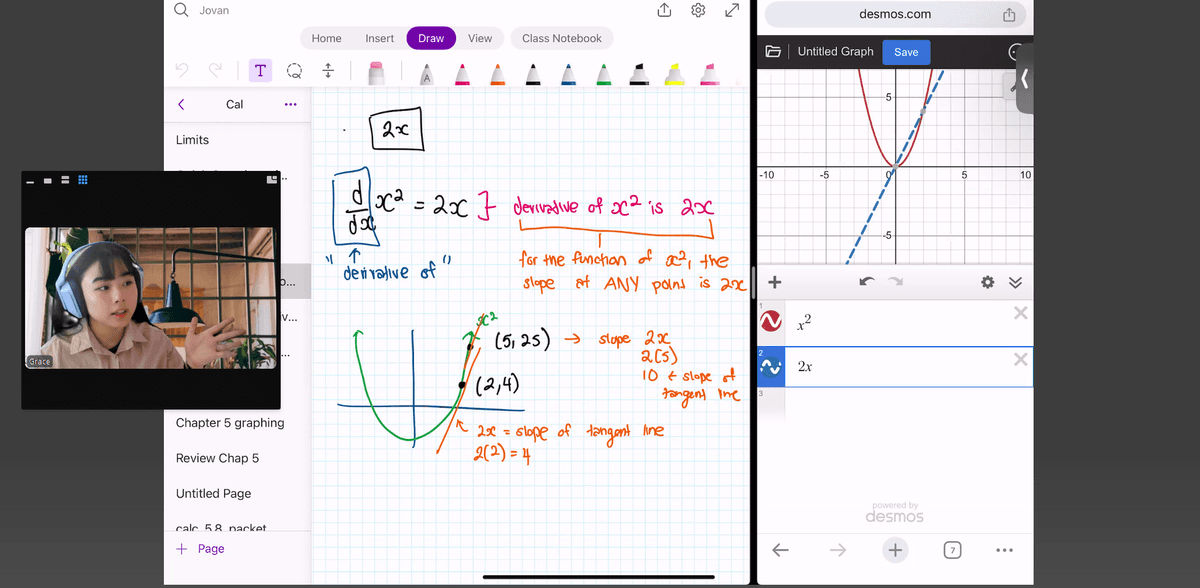 Jovan
Home Insert Draw View Class Notebook
T
A
Cal
Limits
Grace
Chapter 5 graphing
Review Chap 5
Untitled Page
calc 5.8 packet
+ Page
2x
d/dx x² = 2x } derivative of x² is 2x
"derivative of"
for the function of x², the
slope at ANY point is 2x
x²
(5,25) → slope 2x
2(5)
10 ← slope of
tangent line
(2,4)
2x = slope of tangent line
2(2) = 4
desmos.com
Untitled Graph Save
5
-10 -5 0 5 10
-5
1
x²
2
2x
3
powered by
desmos
7